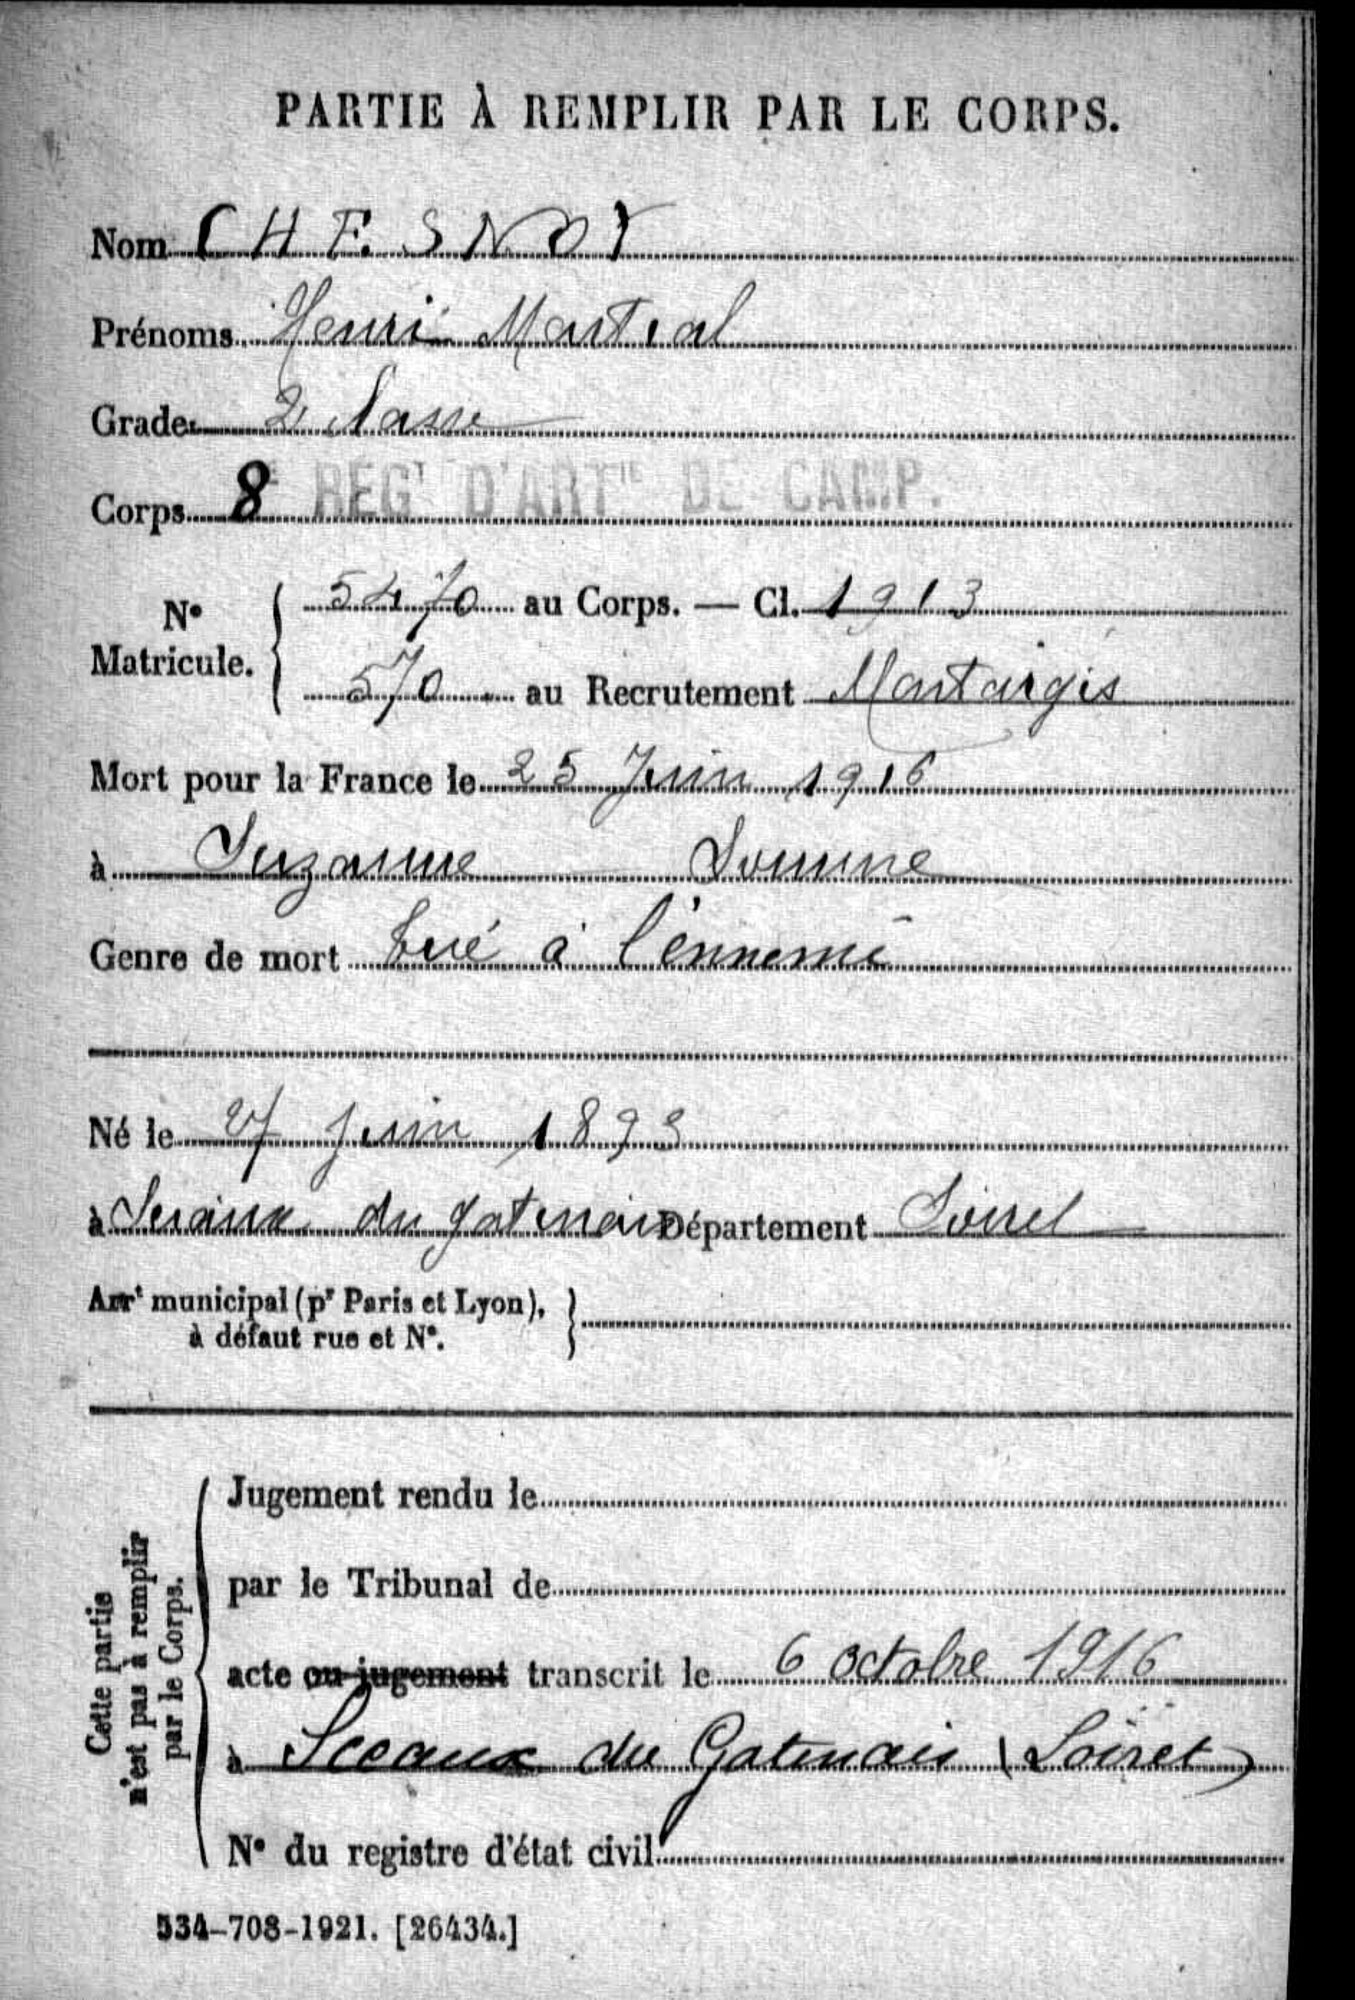 PARTIE À REMPLIR PAR LE CORPS.
Nom CHESNOY
Prénoms Henri Martial
Grade 2e classe
Corps 8e RÉGt D'ARTie DE CAMP.
No Matricule. 5470 au Corps. — Cl. 1913
570 au Recrutement Montargis
Mort pour la France le 25 Juin 1916
à Suzanne Somme
Genre de mort tué à l'ennemi
Né le 27 Juin 1893
à Sceaux du gatenais Département Loiret
Arrt municipal (pr Paris et Lyon),
à défaut rue et No.
Cette partie
n'est pas à remplir
par le Corps.
Jugement rendu le
par le Tribunal de
acte ou jugement transcrit le 6 octobre 1916
à Sceaux du Gatenais (Loiret)
No du registre d'état civil
534-708-1921. [26434.]